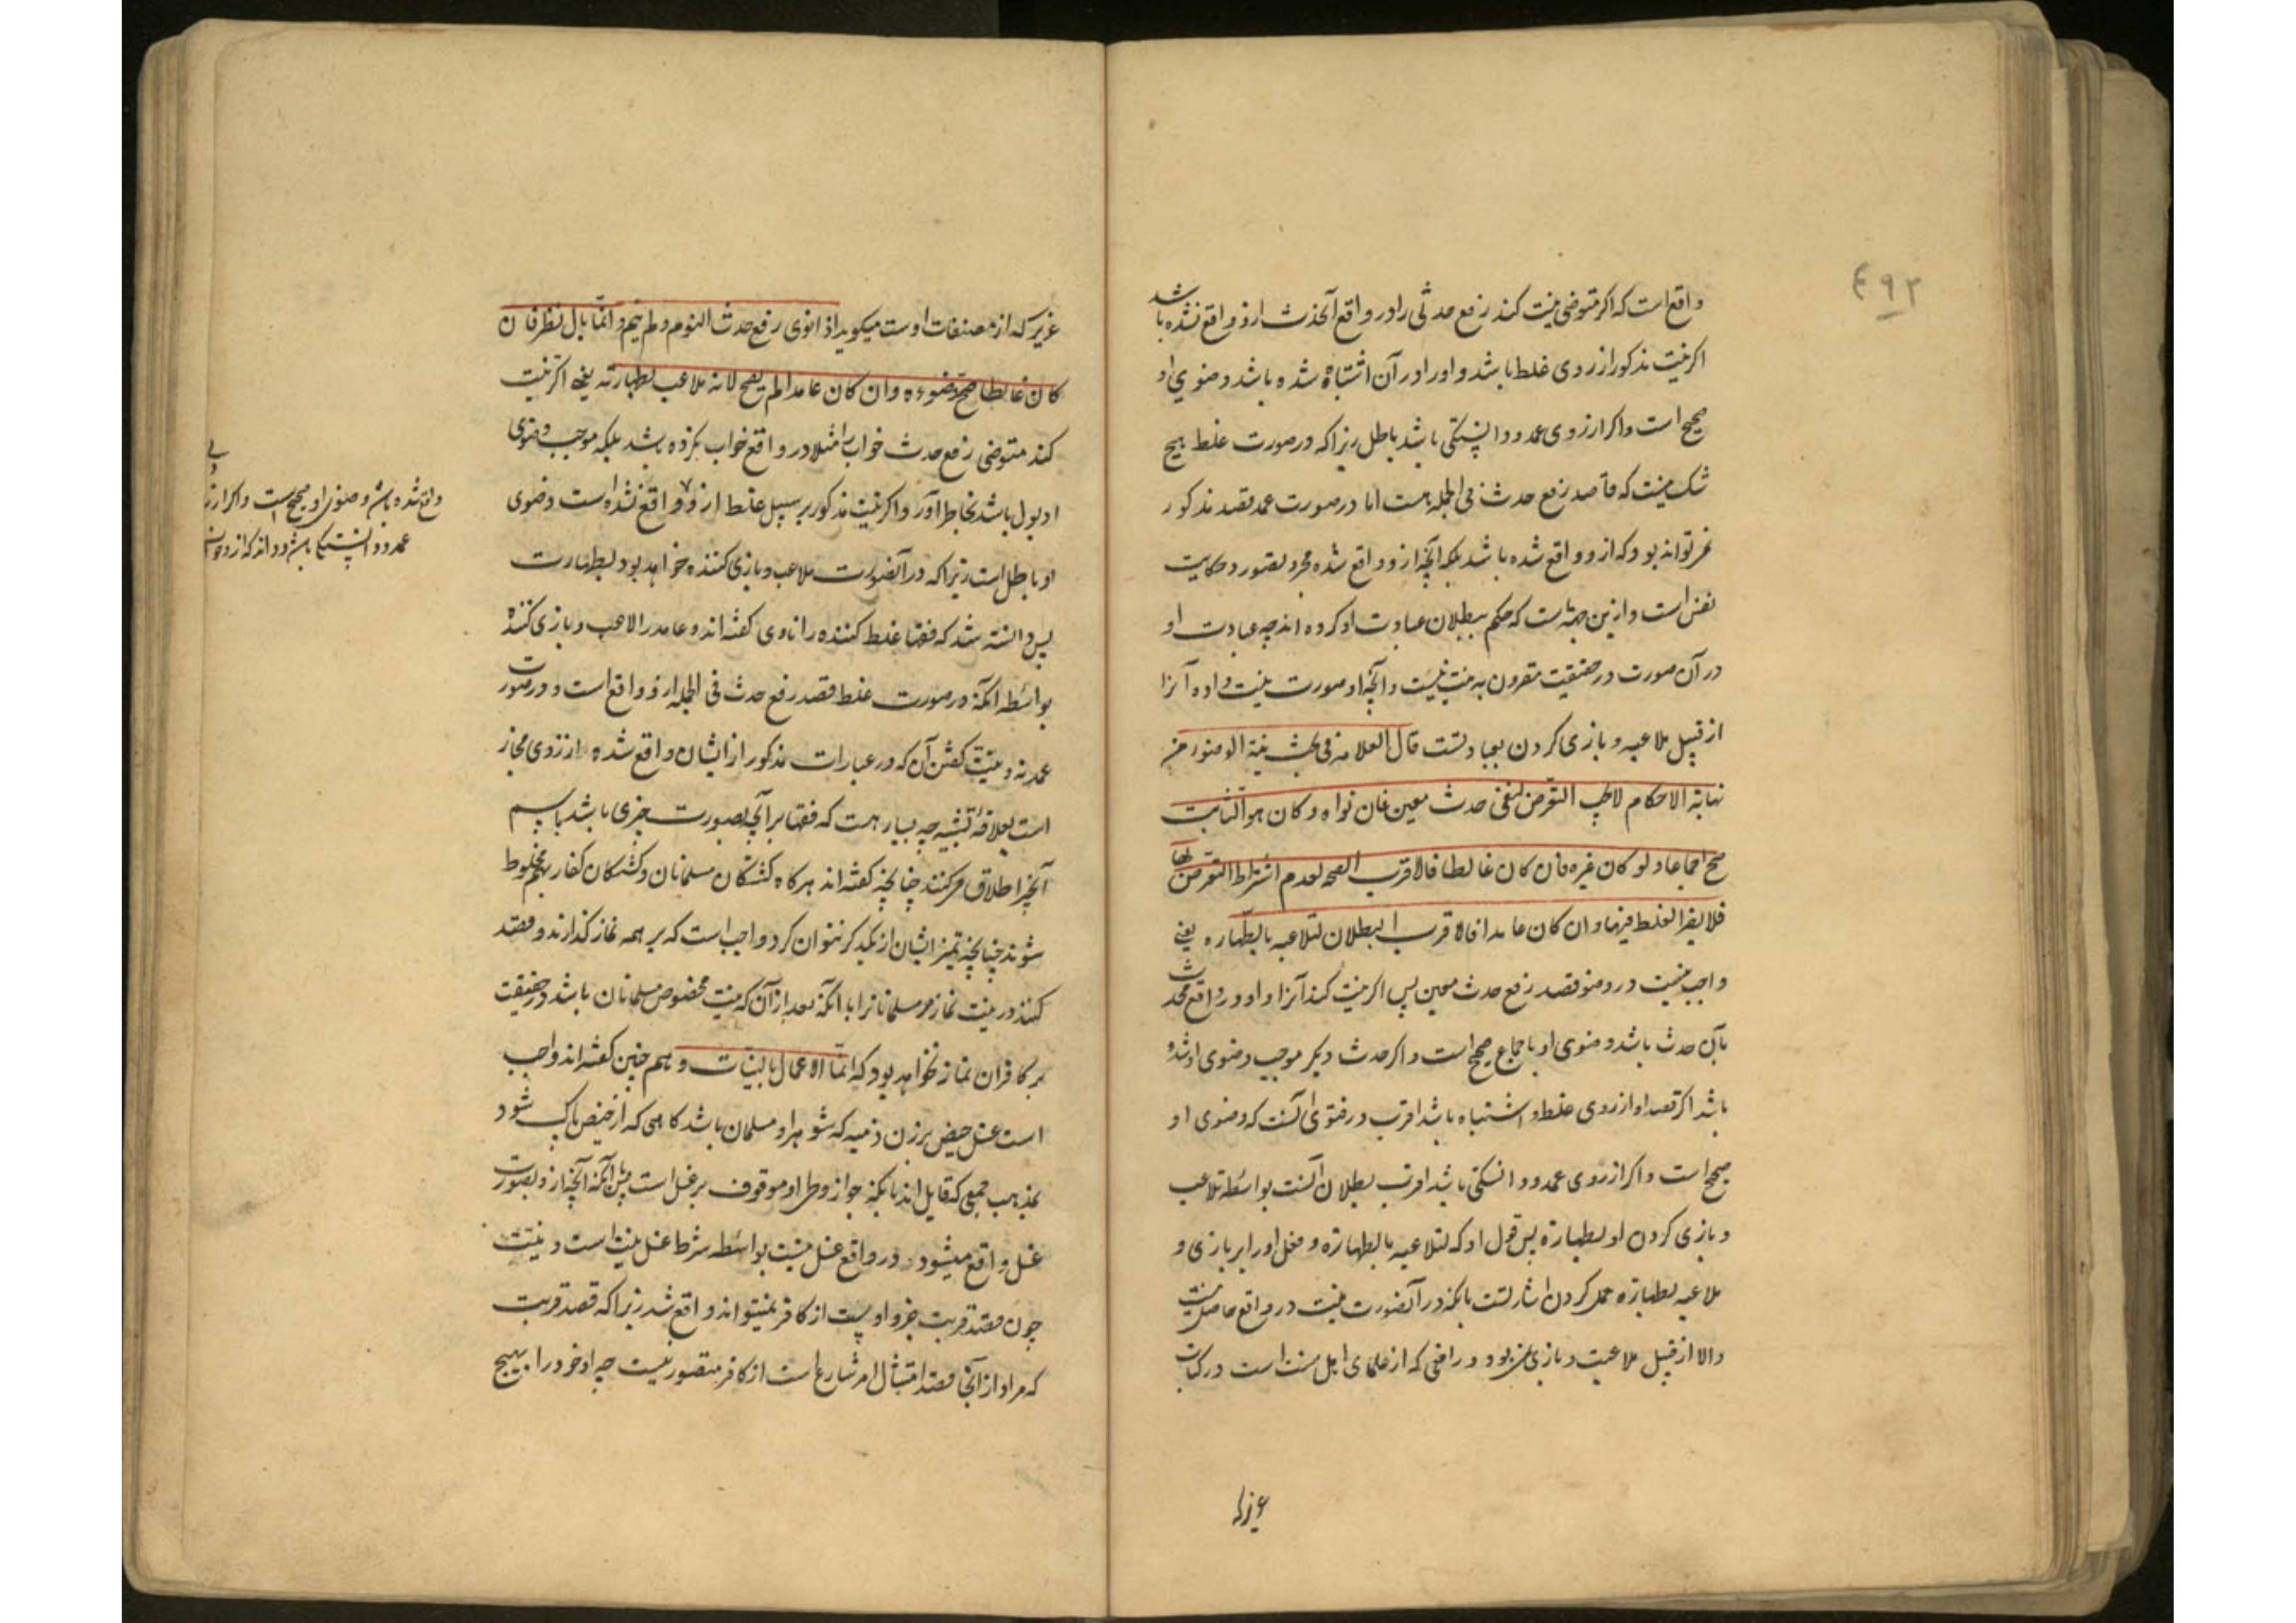 ۴۹۲
واقع است که اکر متوضی نیت کند رفع حدثی را در واقع آنحدث ازو واقع نشده باشد
اکر نیت مذکور از روی غلط باشد و او را در آن اشتباه شده باشد وضوی او
صحیح است و اکر از روی عمد و دانستکی باشد باطل زیرا که در صورت غلط هیچ
شک نیست که قاصد رفع حدث فی الجمله هست اما در صورت عمد قصد مذکور
نمیتواند بود که ازو واقع شده باشد بلکه آنچه ازو واقع شده مجرد تصور و حکایت
نفس است و ازین جهة است که حکم ببطلان عبادت او کرده اند چه عبادت او
در آن صورت در حقیقت مقرون به نیت نیست و آنچه او صورت نیت داده آنرا
از قبیل ملاعبه و بازی کردن بعبادتست قال العلامه فی بحث نیة الوضوء من
نهایة الاحکام لا یجب التعرض لنفی حدث معین فان نواه و کان هو الثابت
صح اجماعا و لو کان غیره فان کان غالطا فالاقرب الصحه لعدم اشتراط التعرض لها
فلا یضر الغلط فیها و ان کان عامدا فالاقرب البطلان لتلاعبه بالطهاره یعنی
واجب نیست در وضو قصد رفع حدث معین پس اکر نیت کند آنرا و او در واقع محدث
بآن حدث باشد وضوی او باجماع صحیح است و اکر حدث دیکر موجب وضوی او شده
باشد اکر قصد او از روی غلط و اشتباه باشد اقرب در فتوی آنست که وضوی او
صحیح است و اکر از روی عمد و دانستکی باشد اقرب بطلان آنست بواسطه تلاعب
و بازی کردن او بطهارة پس قول او که لتلاعبه بالطهارة و فعل او را بر بازی و
ملاعبه بطهارة حمل کردن اشارتست بانکه در آنصورت نیت در واقع حاصل نیست
والا از قبیل ملاعبت و بازی نمیبود و رافعی که از علمای اهل سنت است در کتاب
عزیز که
عزیز که از مصنفات اوست میکوید اذا نوی رفع حدث النوم و لم ینم و انما بال نظر فان
کان غالطا صح وضوءه و ان کان عامدا لم یصح لانه ملاعب بطهارته یعنی اکر نیت
کند متوضی رفع حدث خواب را مثلا در واقع خواب نکرده باشد بلکه موجب وضوی
او بول باشد بخاطر آور و اکر نیت مذکور بر سبیل غلط ازو واقع نشده است وضوی
او باطل است زیرا که در آنصورت ملاعب و بازی کننده خواهد بود بطهارت
پس دانسته شد که فقها غلط کننده را ناوی کفته اند و عامد را لاعب و بازی کننده
بواسطه آنکه در صورت غلط قصد رفع حدث فی الجمله ازو واقع است و در صورت
عمد نه و نیت کفتن آن که در عبارات مذکور از ایشان واقع شده از روی مجاز
است بعلاقه تشبیه چه بسیار هست که فقها بر آنچه بصورت چیزی باشد باسم
آنچیز اطلاق میکنند چنانچه کفته اند هرکاه کشتکان مسلمانان و کشتکان کفار بهم مخلوط
شوند چنانچه تمیز ایشان از یکدیکر نتوان کرد واجب است که بر همه نماز کذارند و قصد
کنند در نیت نماز مر مسلمانانرا با آنکه بعد از آن که نیت مخصوص مسلمانان باشد در حقیقت
بر کافران نماز نخواهد بود که انما الاعمال بالنیات و هم چنین کفته اند واجب
است غسل حیض بر زن ذمیه که شوهر او مسلمان باشد کاهی که از حیض پاک شود
بمذهب جمعی که قایل اند بانکه جواز وطی او موقوف بر غسل است با آنکه آنچه ازو بصورت
غسل واقع میشود در واقع غسل نیست بواسطه شرط غسل نیت است و نیت
چون قصد قربت جزو اوست از کافر نمیتواند واقع شد زیرا که قصد قربت
که مراد از آن قصد امتثال امر شارع است از کافر متصور نیست چه او خود را بهیچ
واقع شده باشد وضوی او صحیح است و اکر از روی
عمد و دانستکی باشد و داند که ازو